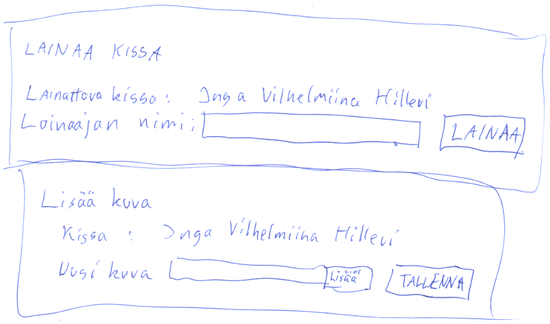 LAINAA KISSA
Lainattava kissa: Inga Vilhelmiina Hillevi
Lainaajan nimi: LAINAA
Lisää kuva
Kissa: Inga Vilhelmiina Hillevi
Uusi kuva Lisää TALLENNA